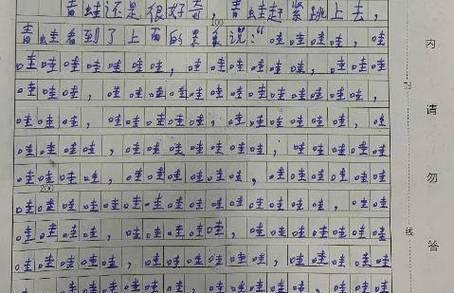 青蛙还是很好奇,青蛙赶紧跳上去,
100
青蛙看到了上面的景象说:“哇哇哇哇,哇
哇哇哇哇哇哇哇哇,哇哇哇哇哇哇哇,哇哇哇
哇哇哇哇,哇哇哇哇哇哇,哇哇哇哇哇哇哇,
哇哇哇哇,哇哇哇哇哇,哇哇哇哇哇哇哇,哇
哇哇哇哇哇,哇哇哇哇哇哇哇,哇哇哇哇哇
哇哇哇哇哇,哇哇哇哇哇哇,哇哇哇哇哇哇
200
哇哇哇哇哇哇哇哇哇哇哇哇哇哇哇哇哇,哇哇
哇哇哇哇哇,哇哇哇哇哇,哇哇哇哇哇哇哇
哇哇哇哇哇,哇哇哇哇哇哇哇,哇哇哇哇哇
哇哇哇哇哇,哇哇哇哇哇哇,哇哇哇哇哇
内
请
勿
答
线